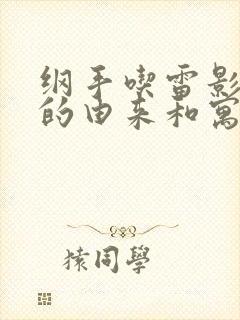 纲手喫雷影
的由来和寓
猿同學